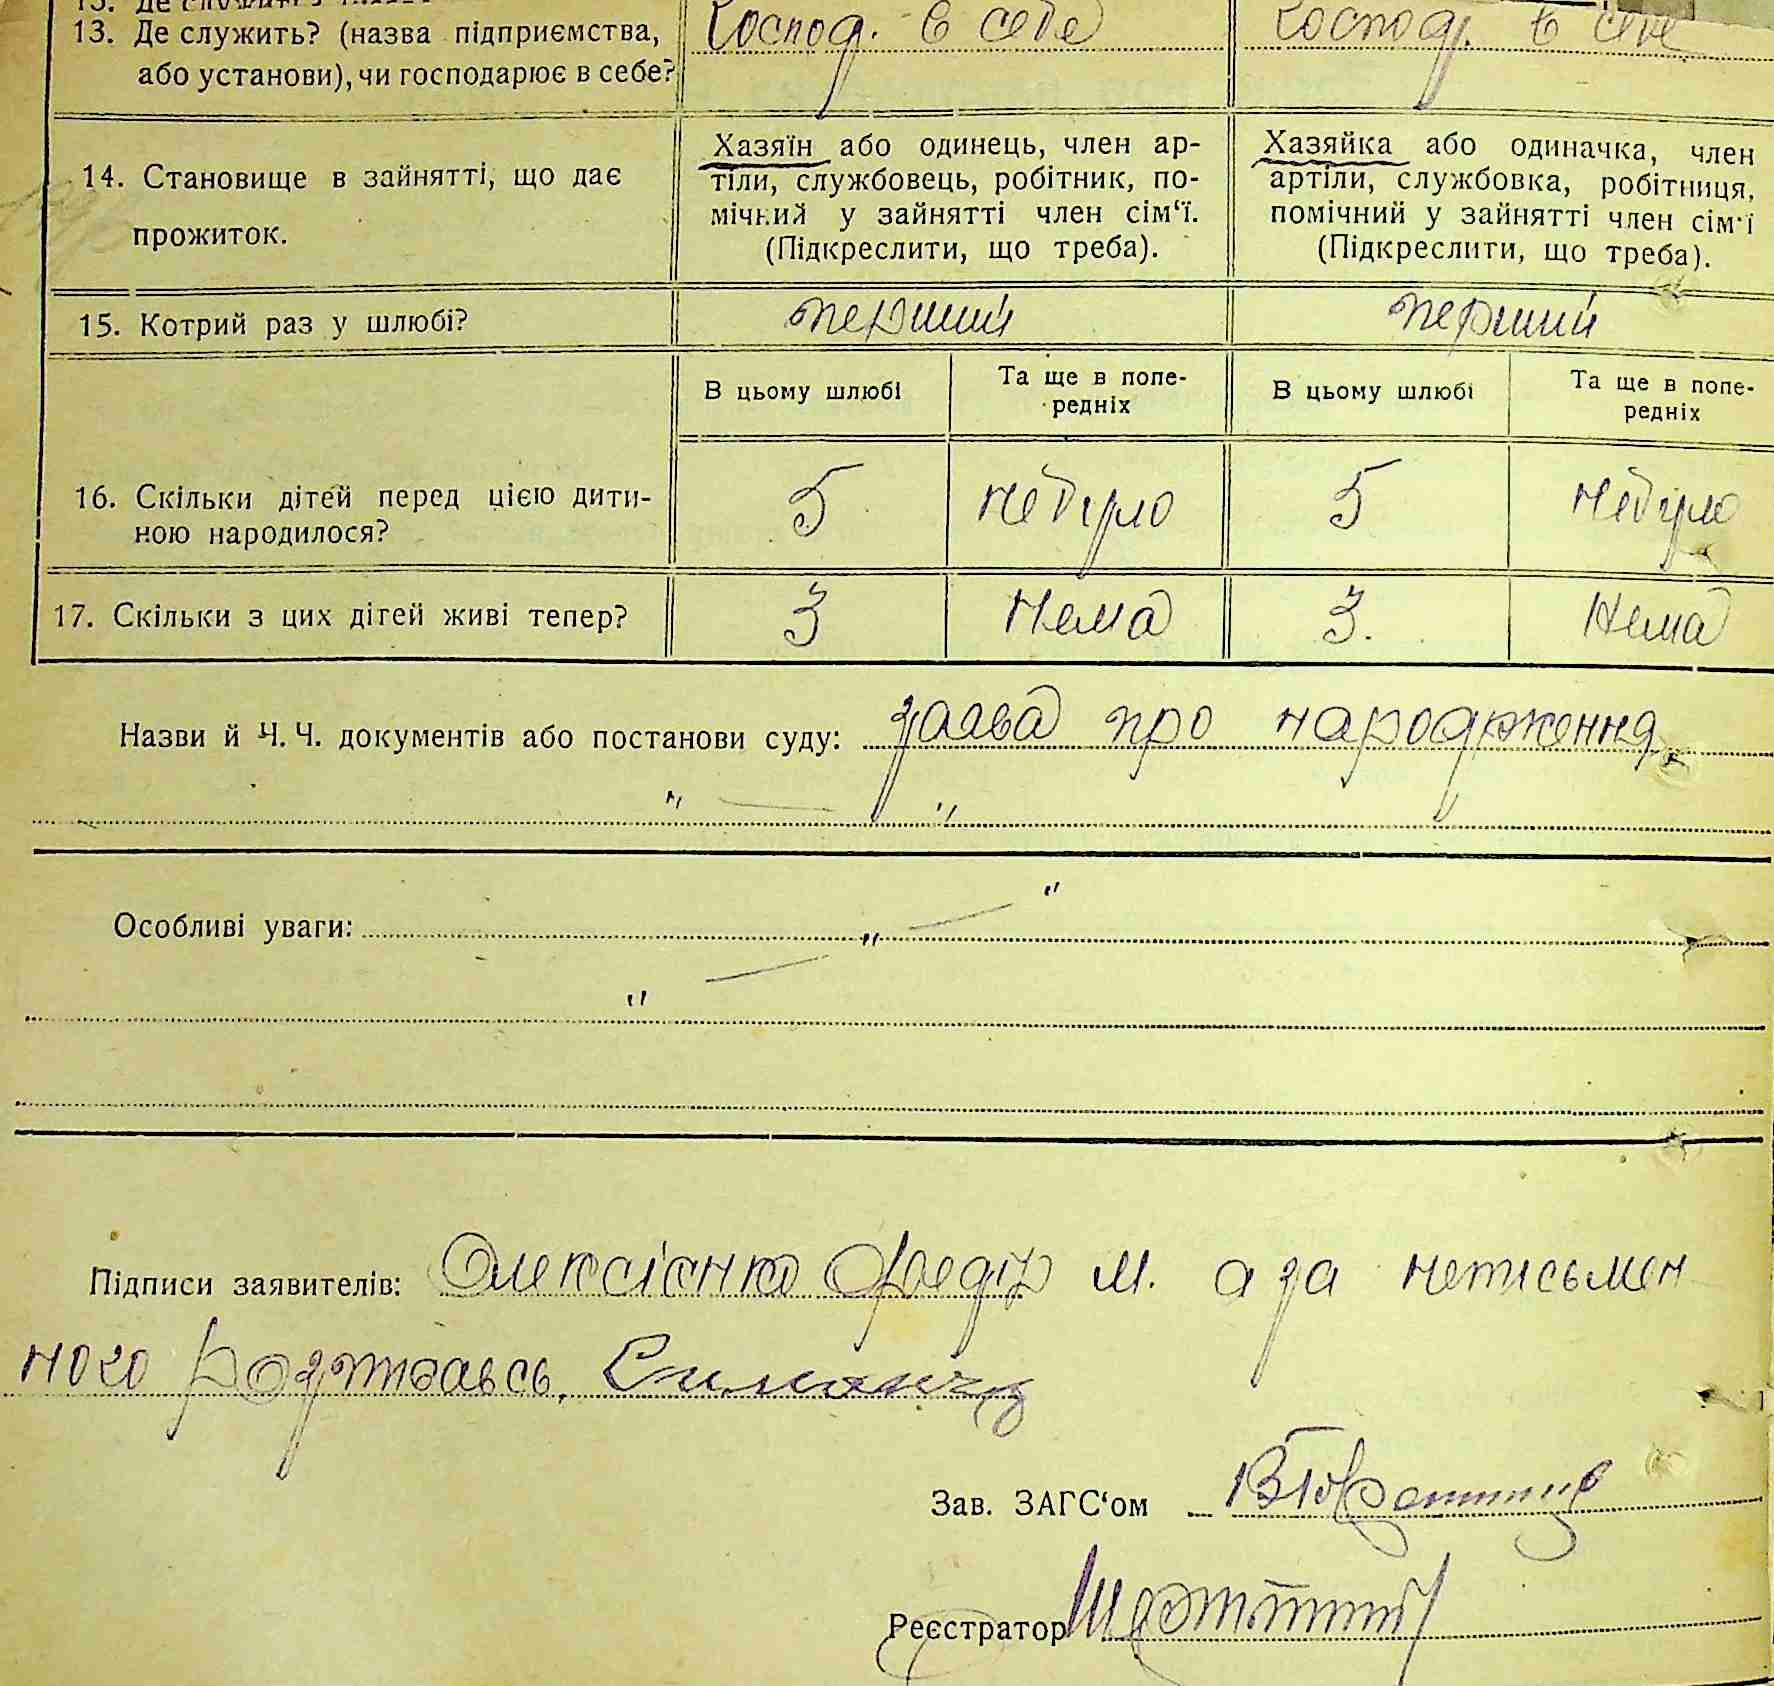 13. Де служить? (назва підприємства, або установи), чи господарює в себе?
Господ. в себе
Господ. в себе
14. Становище в зайнятті, що дає прожиток.
Хазяїн або одинець, член ар-
тіли, службовець, робітник, по-
мічний у зайнятті член сім‘ї.
(Підкреслити, що треба).
Хазяйка або одиначка, член
артіли, службовка, робітниця,
помічний у зайнятті член сім‘ї
(Підкреслити, що треба).
15. Котрий раз у шлюбі?
перший
перший
В цьому шлюбі
Та ще в попе-
редніх
В цьому шлюбі
Та ще в попе-
редніх
16. Скільки дітей перед цією дити-
ною народилося?
5
небуло
5
небуло
17. Скільки з цих дітей живі тепер?
3
Нема
3.
Нема
Назви й Ч. Ч. документів або постанови суду: заява про народження
" — "
Особливі уваги: " — "
" —
Підписи заявителів: Олексієнко Федір М. а за неписьмен
ного розписавсь
Зав. ЗАГС‘ом
Реєстратор